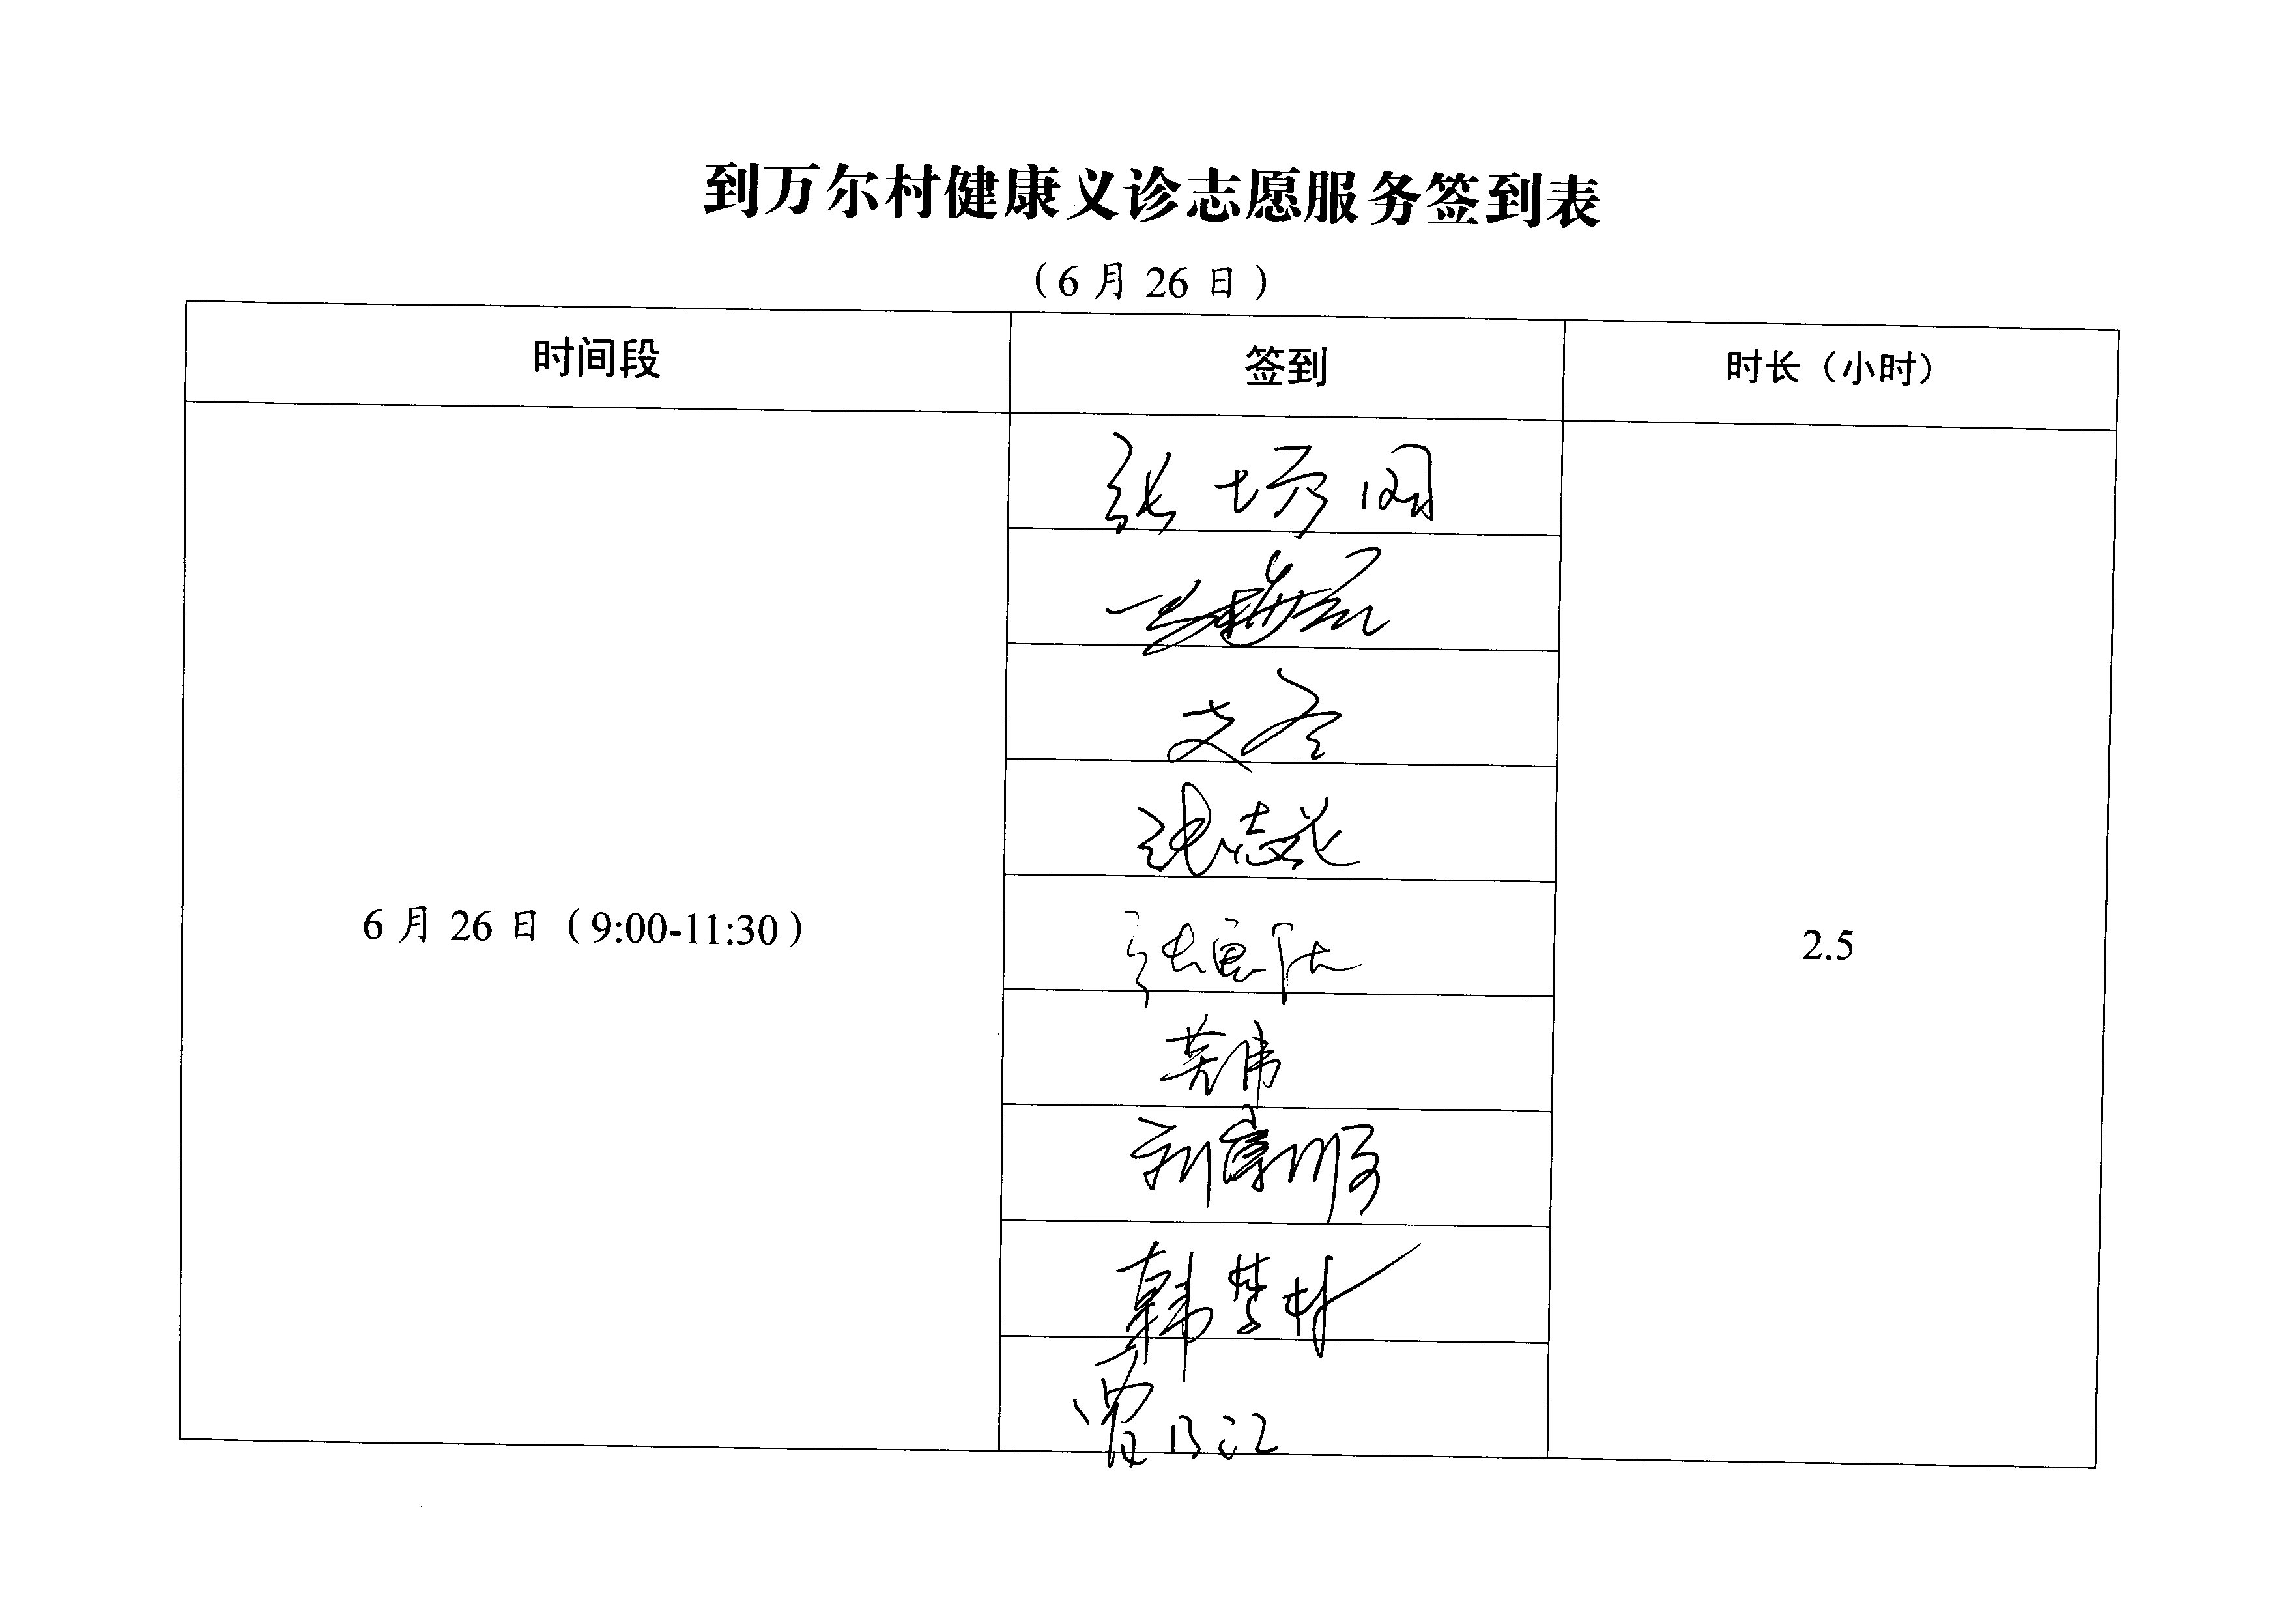 到万尔村健康义诊志愿服务签到表
（6 月 26 日）
时间段 签到 时长（小时）
张
艾冬
张志花
6 月 26 日（9:00-11:30） 2.5
张惠
伟
刘康顺
韩梦林
曾乃江